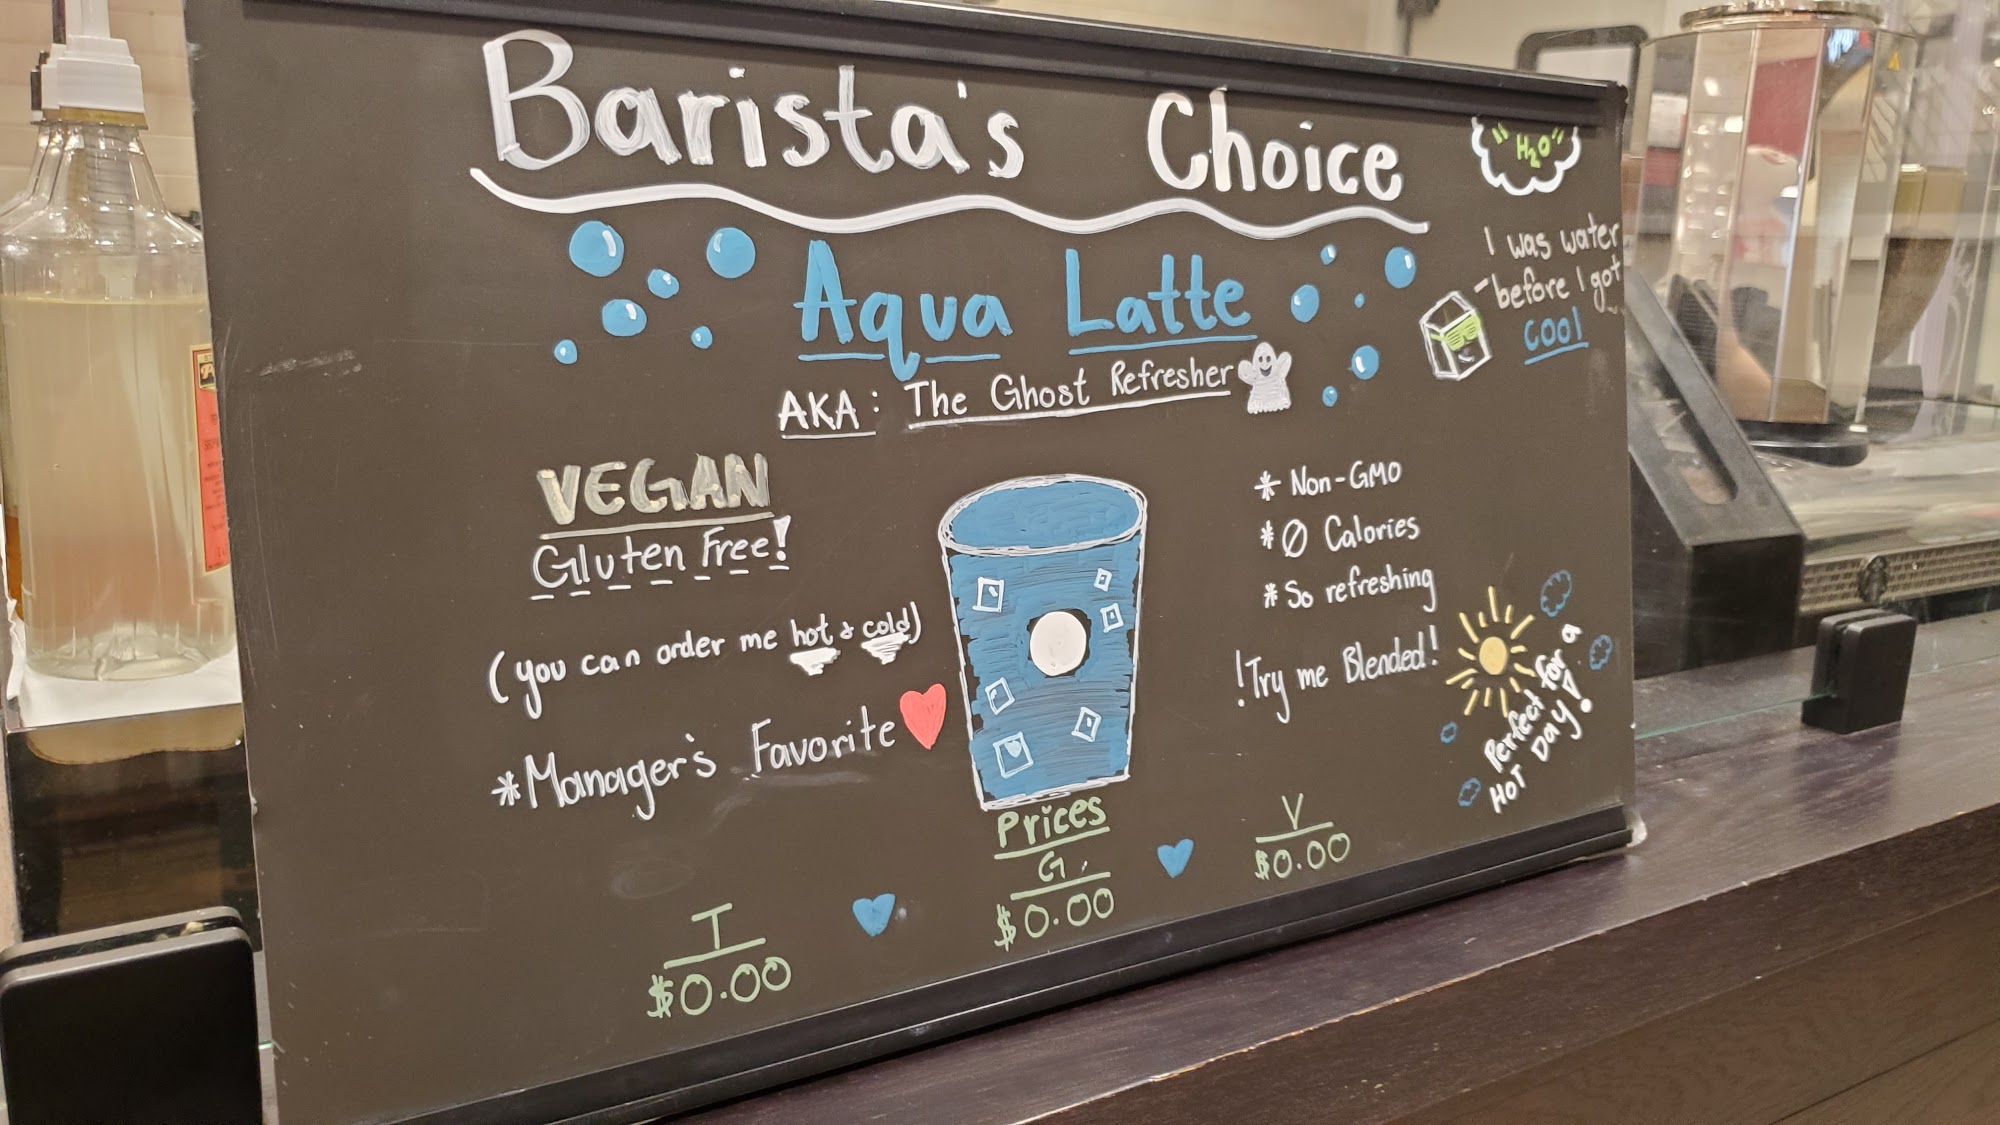 Barista's Choice
"H₂O"
Aqua Latte
I was water
before I got
COOL
AKA: The Ghost Refresher
VEGAN
Gluten Free!
(you can order me hot & cold)
*Manager's Favorite
* Non-GMO
* 0 Calories
* So refreshing
!Try me Blended!
Perfect for a
HOT DAY!
Prices
T
$0.00
G
$0.00
V
$0.00